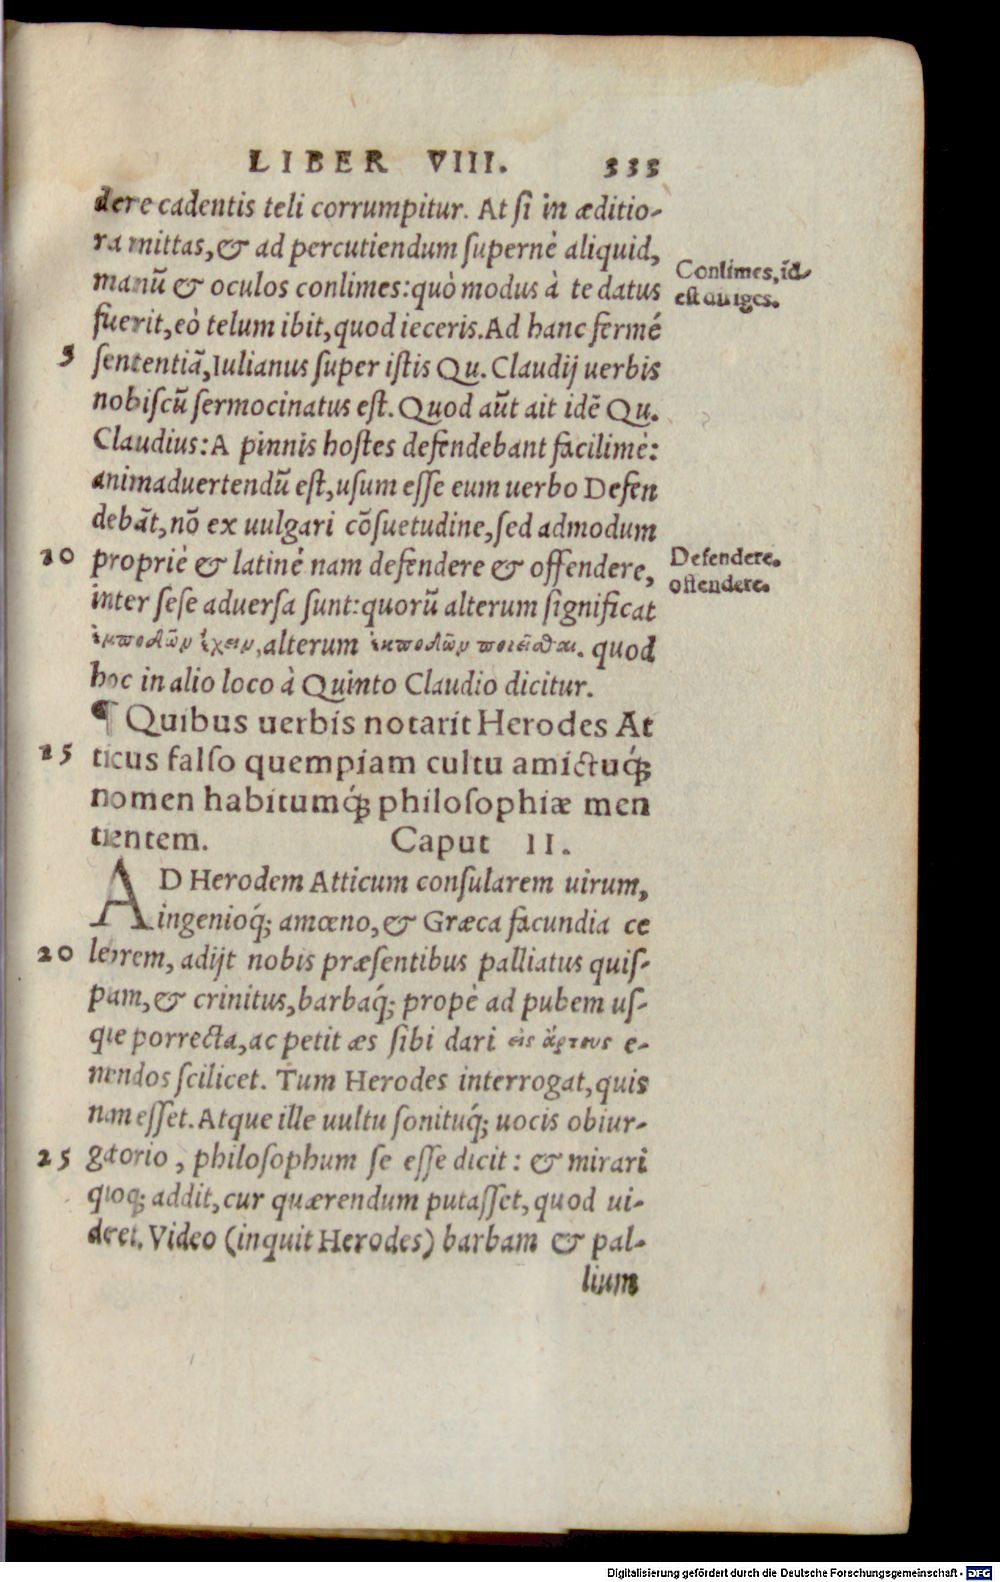 LIBER VIII. 333
dere cadentis teli corrumpitur. At si in æditio-
ra mittas, & ad percutiendum supernè aliquid,
manũ & oculos conlimes: quò modus à te datus
fuerit, eò telum ibit, quod ieceris. Ad hanc fermè
5 sententiã, Iulianus super istis Qu. Claudij uerbis
nobiscũ sermocinatus est. Quod aũt ait idẽ Qu.
Claudius: A pinnis hostes defendebant facilimè:
animaduertendũ est, usum esse eum uerbo Defen
debãt, nõ ex uulgari cõsuetudine, sed admodum
10 propriè & latinè nam defendere & offendere,
inter sese aduersa sunt: quorũ alterum significat
ἐμποδῶν ἔχειν, alterum ἐκποδῶν ποιεῖσθαι. quod
hoc in alio loco à Quinto Claudio dicitur.
¶ Quibus uerbis notarit Herodes At
15 ticus falso quempiam cultu amictuq́;
nomen habitumq́; philosophiæ men
tientem. Caput II.
AD Herodem Atticum consularem uirum,
ingenioq́; amœno, & Græca facundia ce
20 lebrem, adijt nobis præsentibus palliatus quis-
pam, & crinitus, barbaq́; propè ad pubem us-
que porrecta, ac petit æs sibi dari εἰς ἄρτους e-
mendos scilicet. Tum Herodes interrogat, quis
nam esset. Atque ille uultu sonituq́; uocis obiur-
25 gatorio, philosophum se esse dicit: & mirari
quoq; addit, cur quærendum putasset, quod ui-
deret. Video (inquit Herodes) barbam & pal-
lium
Conlimes, id
est diriges.
Defendere.
offendere.
Digitalisierung gefördert durch die Deutsche Forschungsgemeinschaft - DFG